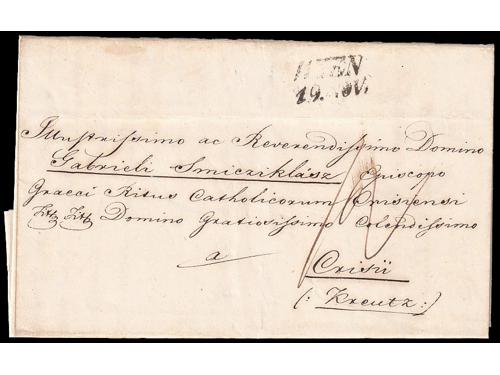 WIEN
19. NOV.
Illustrissimo ac Reverendissimo Domino
Gabrieli Smicziklász Episcopo
Graeci Ritus Catholicorum Crisiensi
Domino Gratiosissimo Colendissimo
a
Crisii
(: Kreutz :)